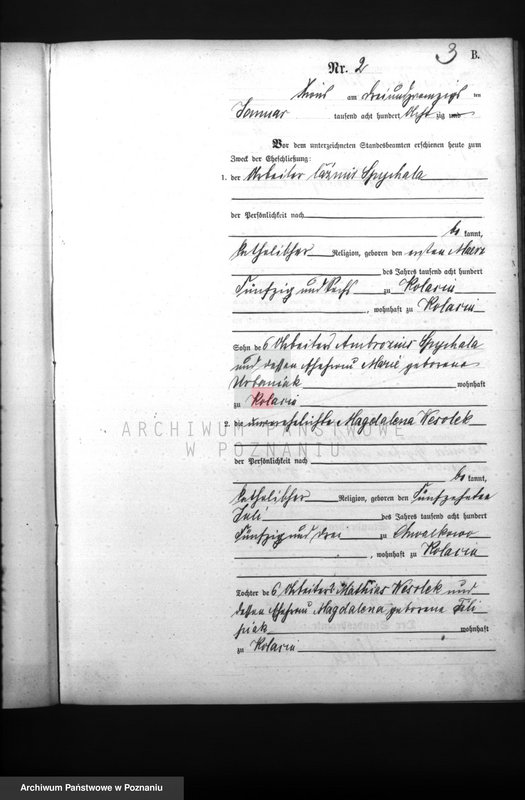 3 B.
Nr. 2
am dreiundzwanzigsten
Januar tausend acht hundert Acht zig und
Vor dem unterzeichneten Standesbeamten erschienen heute zum
Zweck der Eheschließung:
1. der Arbeiter Spychala
der Persönlichkeit nach
be kannt,
katholischer Religion, geboren den ersten
des Jahres tausend acht hundert
Fünfzig und Sechs zu Kolacin
, wohnhaft zu Kolacin
Sohn des Arbeiters Ambrosius Spychala
und dessen Ehefrau Marie geborene
Urbaniak wohnhaft
zu Kolacin
2. die unverehelichte Magdalena Wesolek
der Persönlichkeit nach
be kannt,
katholischer Religion, geboren den Fünfzehnten
Juli des Jahres tausend acht hundert
Fünfzig und drei zu Chwalkowo
, wohnhaft zu Kolacin
Tochter des Arbeiters Mathias Wesolek und
dessen Ehefrau Magdalena geborene Fili
piak wohnhaft
zu Kolacin
ARCHIWUM PAŃSTWOWE
W POZNANIU
Archiwum Państwowe w Poznaniu